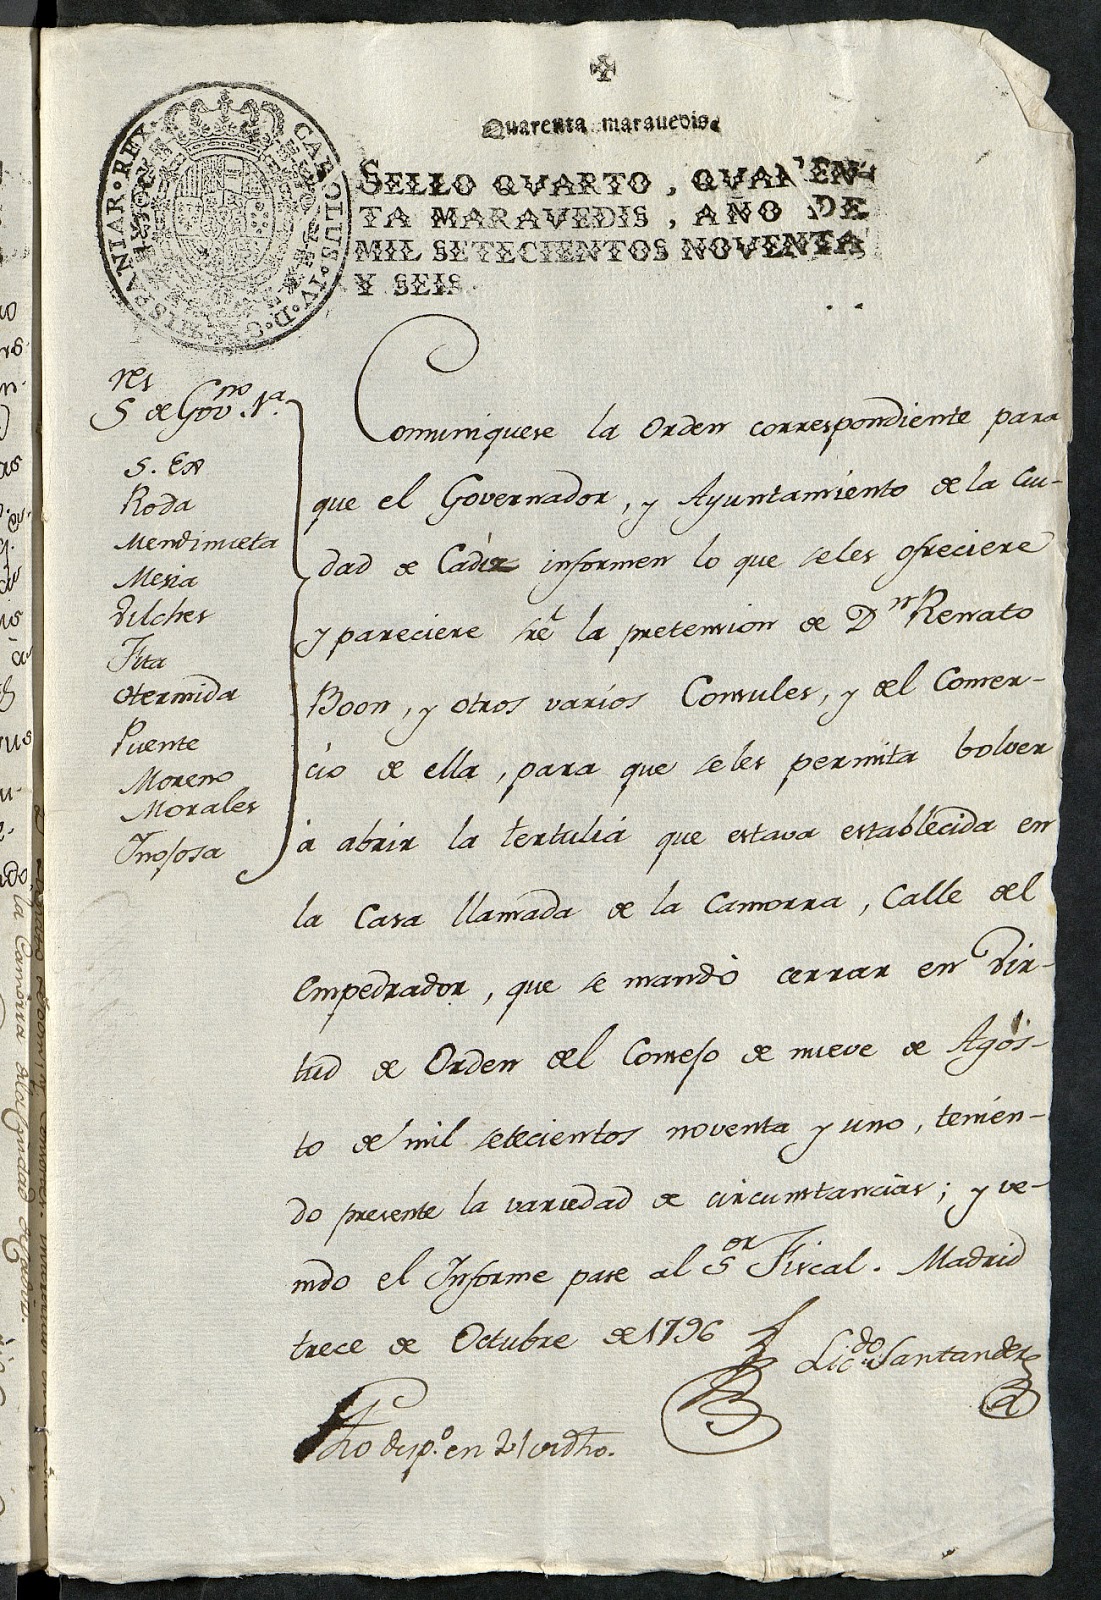 Quarenta marauedis.
SELLO QVARTO, QVAREN-
TA MARAVEDIS, AÑO DE
MIL SETECIENTOS NOVENTA
Y SEIS.
CAROLUS · IV · D · G · HISPANIAR · REX ·
res
S de Govno 1a.
S. Ex
Roda
Mendinueta
Mesia
Vilches
Fita
Otermida
Puente
Moreno
Morales
Inojosa
Comuniquese la Orden correspondiente para
que el Governador, y Ayuntamiento de la Ciu-
dad de Cadiz informen lo que seles ofreciere
y pareciere sre la pretension de Dn Renato
Boom, y otros varios Consules, y del Comer-
cio de ella, para que seles permita bolver
á abrir la tertulia que estava establecida en
la Casa llamada de la Camorra, Calle del
Empedrador, que se mandó cerrar en Vir-
tud de Orden del Consejo de nueve de Agos-
to de mil setecientos noventa y uno, tenien-
do presente la variedad de circunstancias; y ve-
nido el Informe pase al Sor Fiscal. Madrid
trece de Octubre de 1796
Licdo Santander
fho desp.o en 21 de dho.